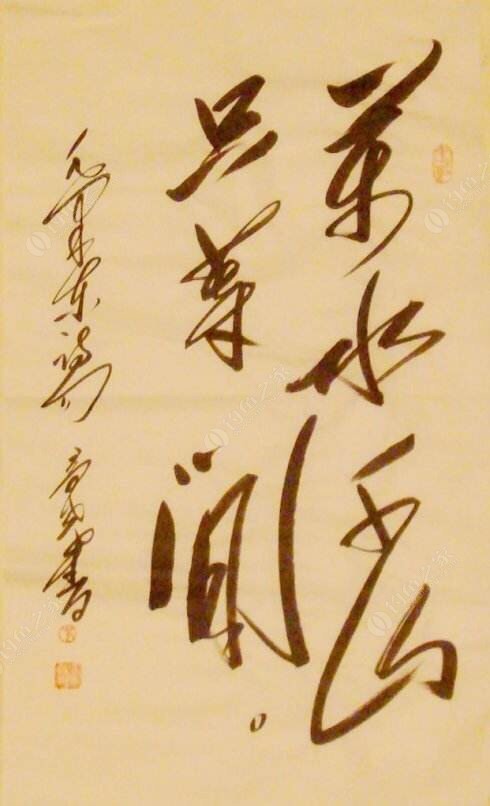 萬水千山
只等閒
毛澤東詩句
書